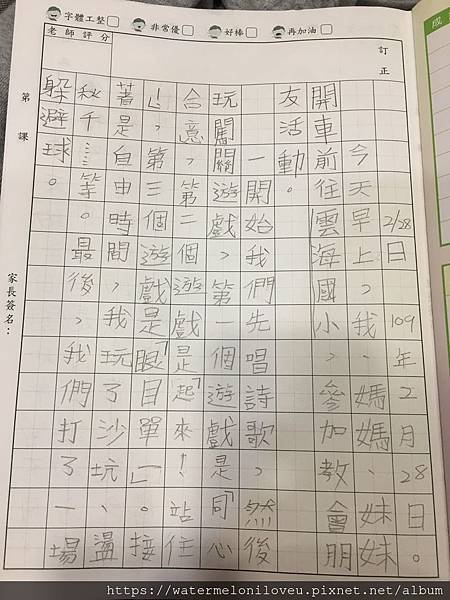 字體工整 非常優 好棒 再加油
老師評分
訂正
第 課
家長簽名：
2/28日 109年2月28日。
今天早上，我、媽媽、妹妹
開車前往雲海國小，參加教會朋
友活動。
一開始，我們先唱詩歌，然後
玩闖關遊戲，第一個遊戲是「同心
合意，第二個遊戲是「起來！站住
！」，第三個遊戲是「眼目單」。接
著是自由時間，我玩了沙坑、盪
秋千…等。最後，我們打了一場
躲避球。
https://watermeloniloveu.pixnet.net/album